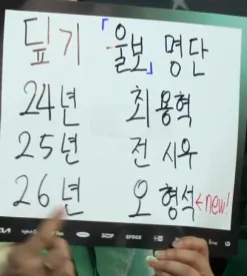 딮기 「울보」 명단
24년 최용혁
25년 전시우
26년 오형석 ← new!
KIA
crocs
LG